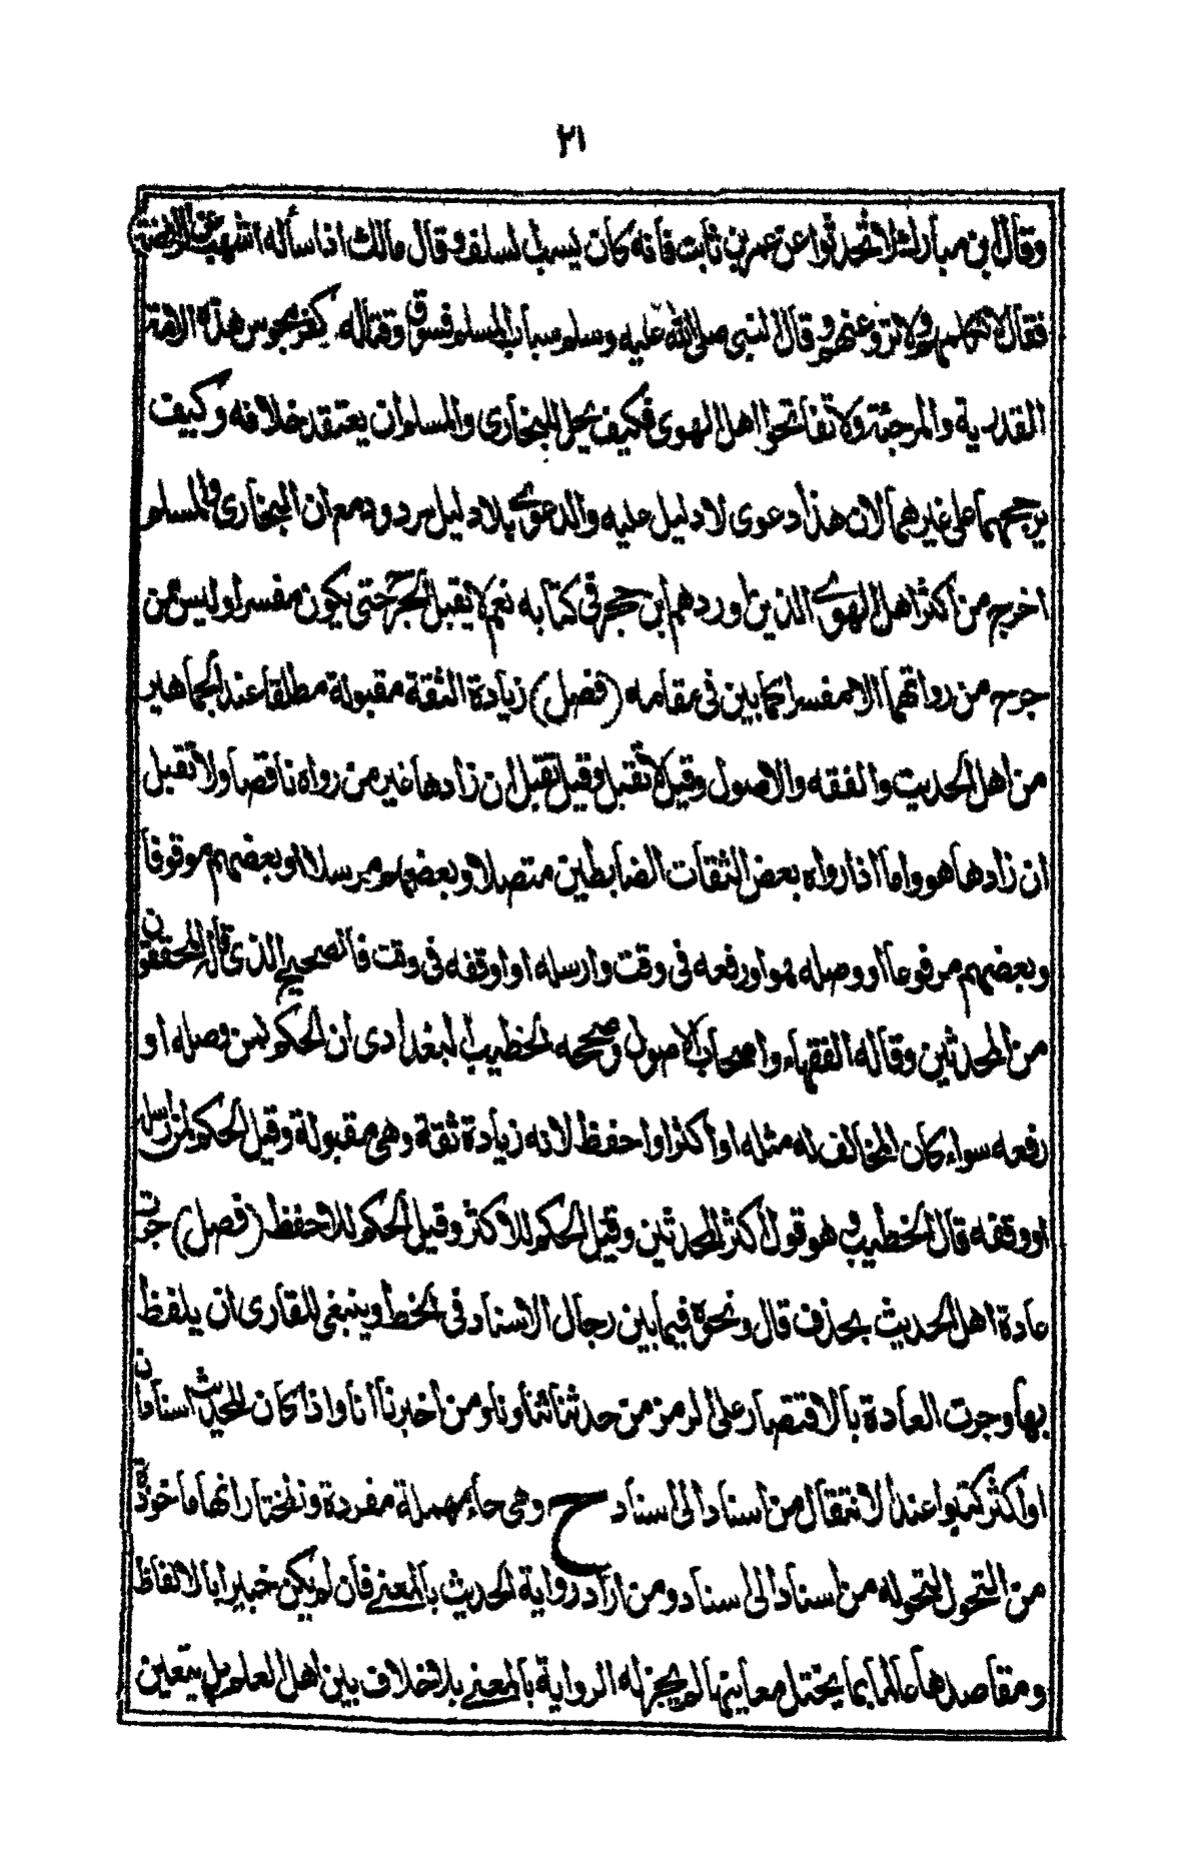 ٢١
وقال ابن مبارك لا تحدثوا عن عمر بن ثابت فانه كان يسب السلف وقال مالك اذا سأله اشهب عن الرافضة
فقال لا تكلمهم ولا ترو عنهم وقال النبي صلى الله عليه وسلم سباب المسلم فسوق وقتاله كفر مجوس هذه الامة
القدرية والمرجئة ولا تفاتحوا اهل الهوى فكيف يحل للبخارى والمسلم ان يعتقد خلافه وكيف
يرجحهما على غيرهما لان هذا دعوى لا دليل عليه والدعوى بلا دليل مردود مع ان البخارى والمسلم
اخرج من اكثر اهل الهوى الذين اوردهم ابن حجر فى كتابه نعم لا يقبل الجرح حتى يكون مفسرا وليس من
جرح من رواتهما الا مفسرا كما بين فى مقامه (فصل) زيادة الثقة مقبولة مطلقا عند الجماهير
من اهل الحديث والفقه والاصول وقيل لا تقبل وقيل تقبل ان زادها غير من رواه ناقصا ولا تقبل
ان زادها هو واما اذا رواه بعض الثقات الضابطين متصلا وبعضهم مرسلا او بعضهم موقوفا
وبعضهم مرفوعا او وصله هو او رفعه فى وقت وارسله او اوقفه فى وقت فالصحيح الذى قاله المحققون
من المحدثين وقاله الفقهاء واصحاب الاصول وصححه الخطيب البغدادى ان الحكم لمن وصله او
رفعه سواء كان المخالف له مثله او اكثر او احفظ لانه زيادة ثقة وهى مقبولة وقيل الحكم لمن ارسله
او وقفه قال الخطيب وهو قول اكثر المحدثين وقيل الحكم للاكثر وقيل الحكم للاحفظ (فصل) جرت
عادة اهل الحديث بحذف قال ونحوه فيما بين رجال الاسناد فى الخط وينبغى للقارى ان يلفظ
بها وجرت العادة بالاقتصار على الرمز من حدثنا ثنا ونا ومن اخبرنا انا واذا كان للحديث اسنادان
او اكثر كتبوا عند الانتقال من اسناد الى اسناد ح وهى حاء مهملة مفردة ونختار انها ماخوذة
من التحول لتحوله من اسناد الى اسناد ومن اراد رواية الحديث بالمعنى فان لم يكن خبيرا بالالفاظ
ومقاصدها عالما بما يختل معانيها لم يجز له الرواية بالمعنى بلا خلاف بين اهل العلم بل يتعين